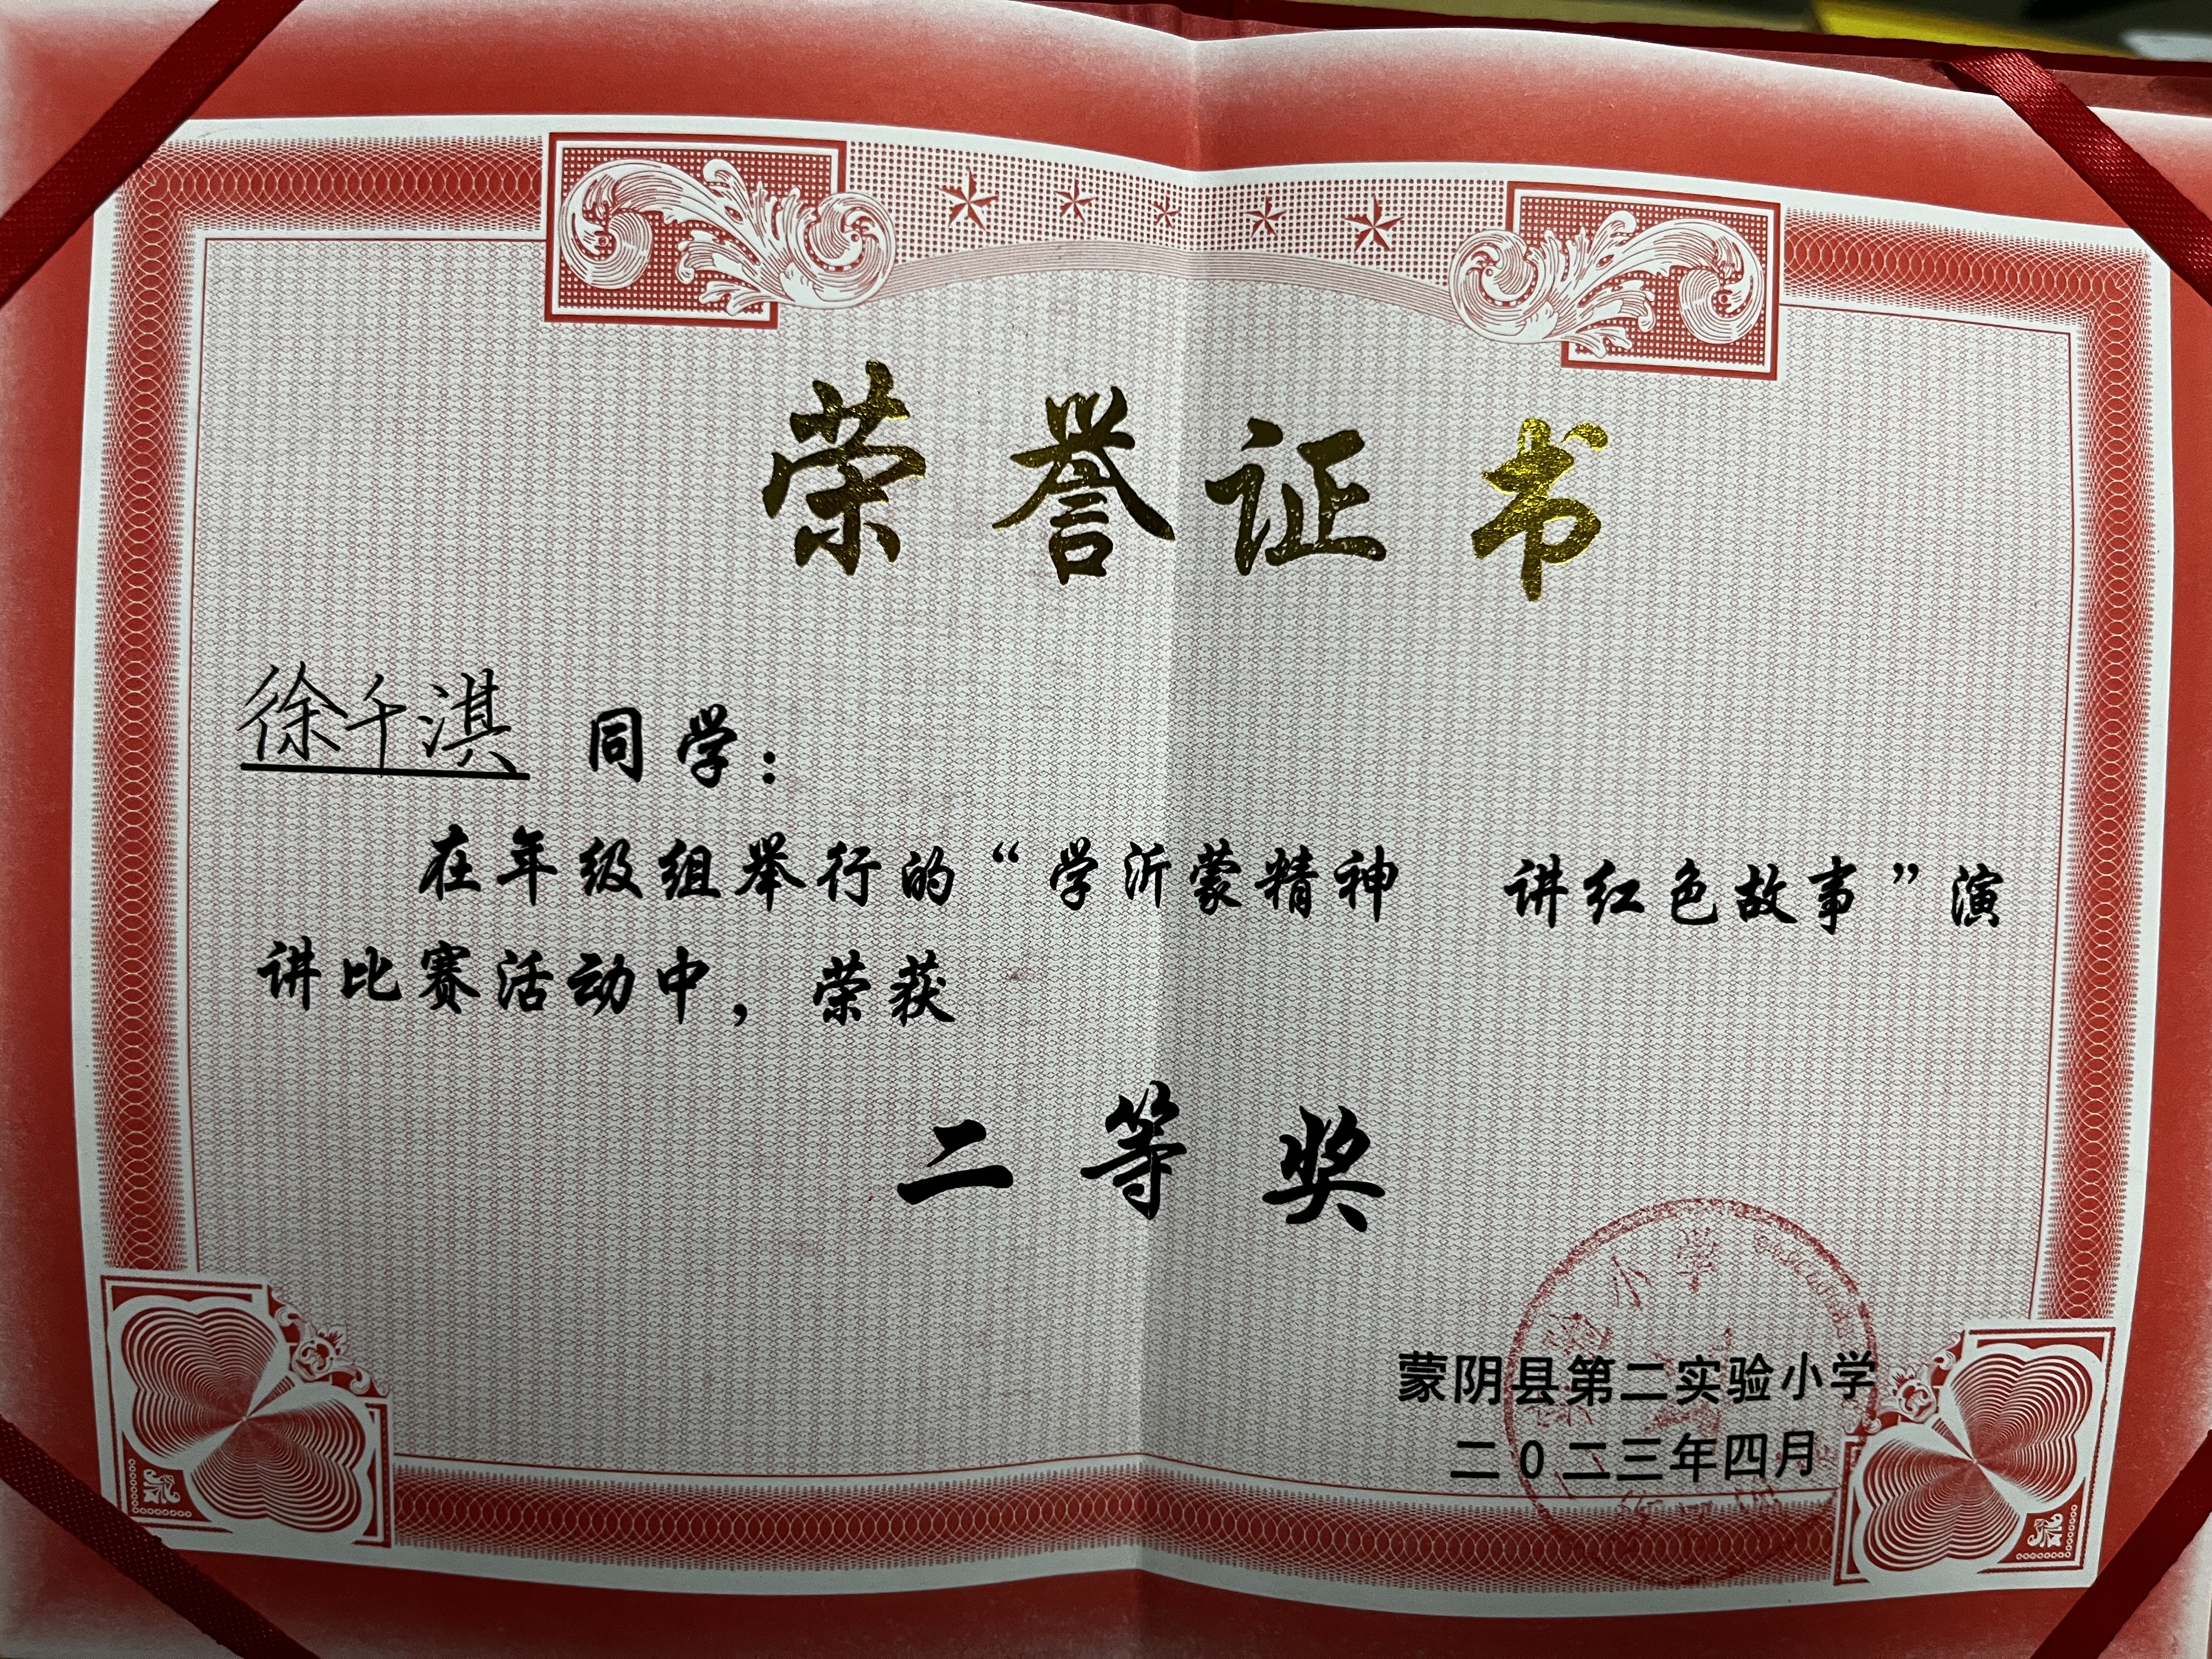 荣誉证书
徐千淇 同学：
在年级组举行的“学沂蒙精神 讲红色故事”演
讲比赛活动中，荣获
二等奖
蒙阴县第二实验小学
二0二三年四月
小学